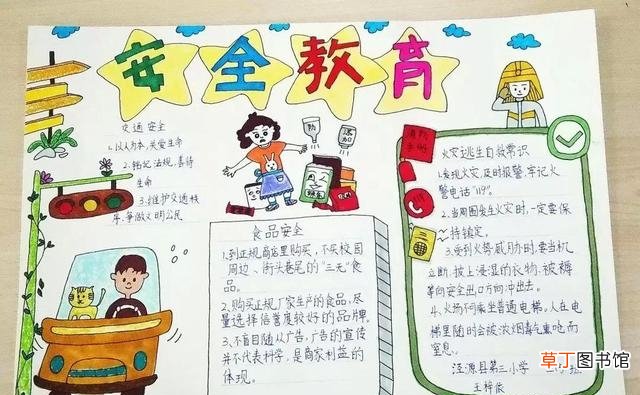 安全教育
交通安全
1.以人为本,关爱生命
2.铭记法规,善待
生命
3.维护交通秩
序,争做文明公民
食品安全
1.到正规商店里购买,不买校园
周边、街头巷尾的“三无”食
品。
2.购买正规厂家生产的食品,尽
量选择信誉度较好的品牌。
3.不盲目随从广告,广告的宣传
并不代表科学,是商家利益的
体现。
火灾逃生自救常识
1.发现火灾,及时报警,牢记火
警电话“119”。
2.当周围发生火灾时,一定要保
持镇定。
3.受到火势威胁时,要当机
立断,披上浸湿的衣物、被褥
等向安全出口方向冲出去。
4.火场不乘坐普通电梯。人在电
梯里随时会被浓烟毒气熏呛而
窒息。
泾源县第三小学
草丁图书馆